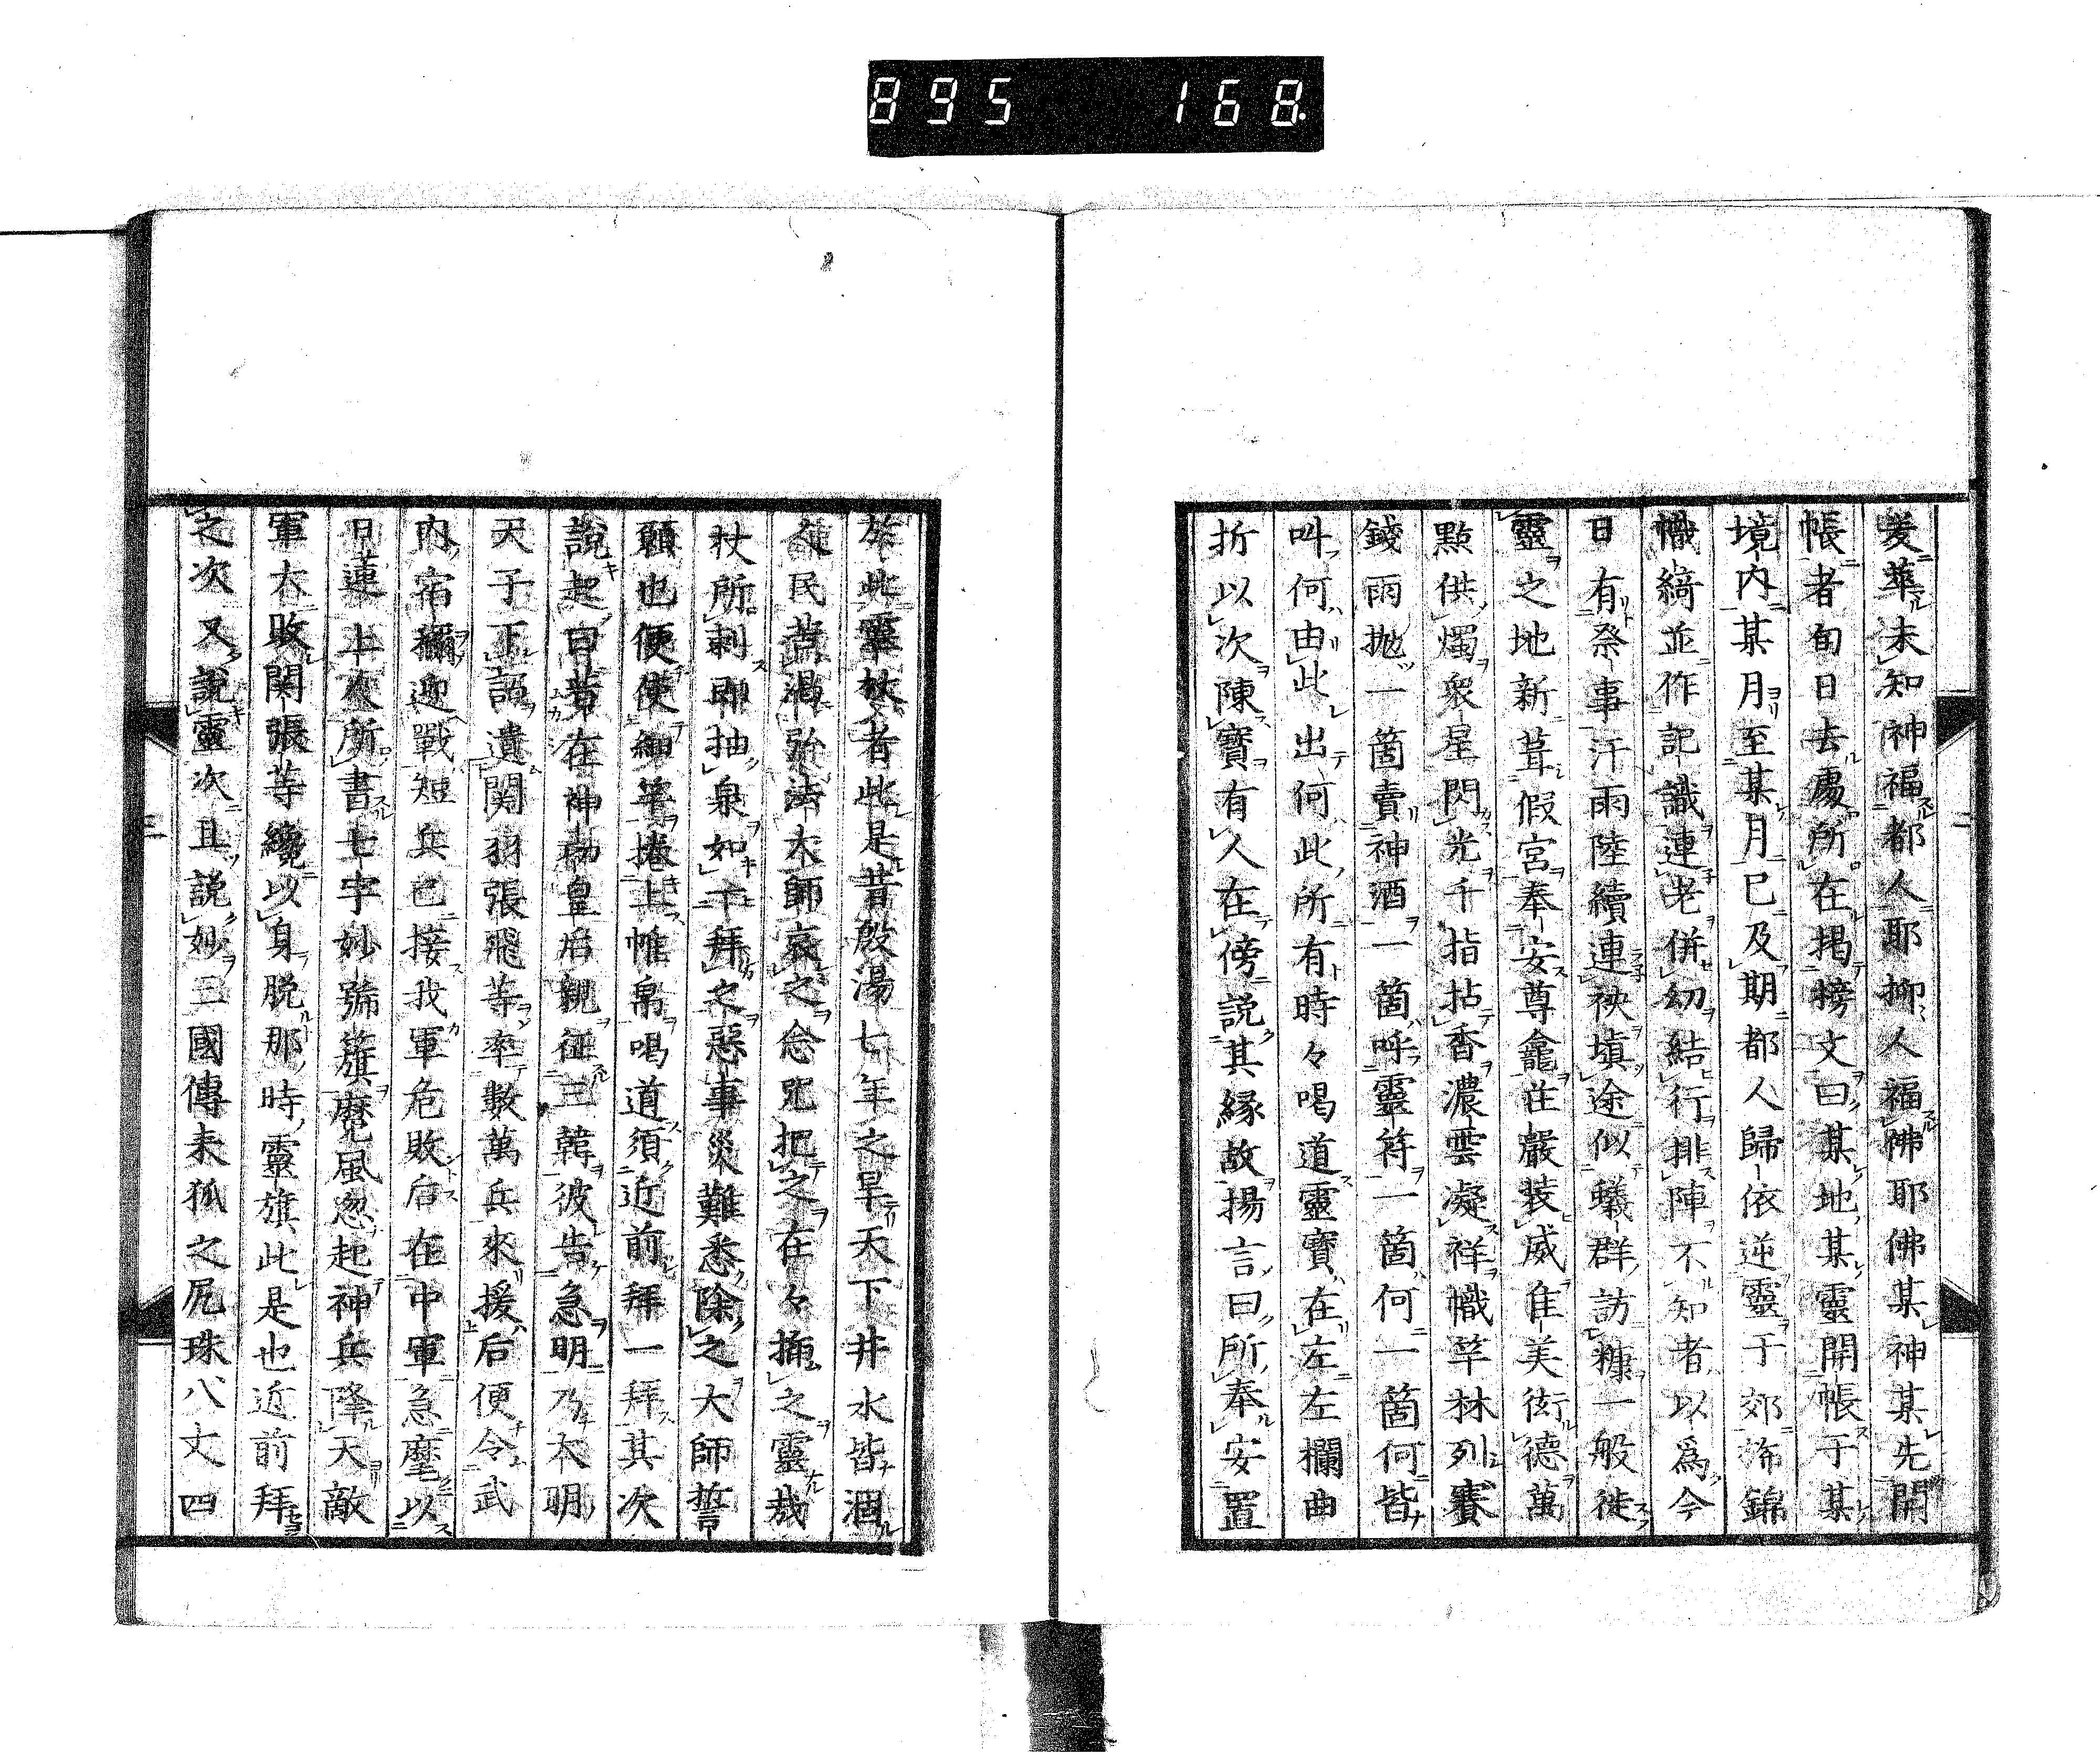 895 168.
爰萃未知神福都人耶抑人福佛耶佛某神某先開
帳者旬日去處所在掲榜文曰某地某靈開帳于某
境内某月至某月已及期都人歸依逆靈于郊旆錦
幟綺並作記識連老併幼結行排陣不知者以爲今
日有祭事汗雨陸續連袂塡途似蟻群訪糠一般徙
靈之地新葺假宮奉安尊龕荘嚴装威隹美衒德萬
點供燭衆星閃光千指拈香濃雲凝祥幟竿林列賽
錢雨拋一箇賣神酒一箇呼靈符一箇何一箇何皆
叫何由此出何此所有時々喝道靈寶在左左欄曲
折以次陳寶有人在傍說其縁故揚言曰所奉安置
於此靈杖者此是昔殷湯七年之旱天下井水皆涸
人民苦渇弘法大師哀之念呪把之在々揷之靈哉
杖所刺即抽泉如千拜之惡事災難悉除之大師誓
願也便使細竿捲上帷帛喝道須近前拜一拜其次
說起曰昔在神功皇后親征三韓彼告急明乃大明
天子下詔遣関羽張飛等率數萬兵來援后便令武
内宿禰迎戰短兵已接我軍危敗后在中軍急麾以
日蓮上人所書七字妙號籏麾風忽起神兵降天敵
軍大敗関張等纔以身脱那時靈旗此是也近前拜
之次又說靈次且說妙三國傳来狐之尻珠八丈四